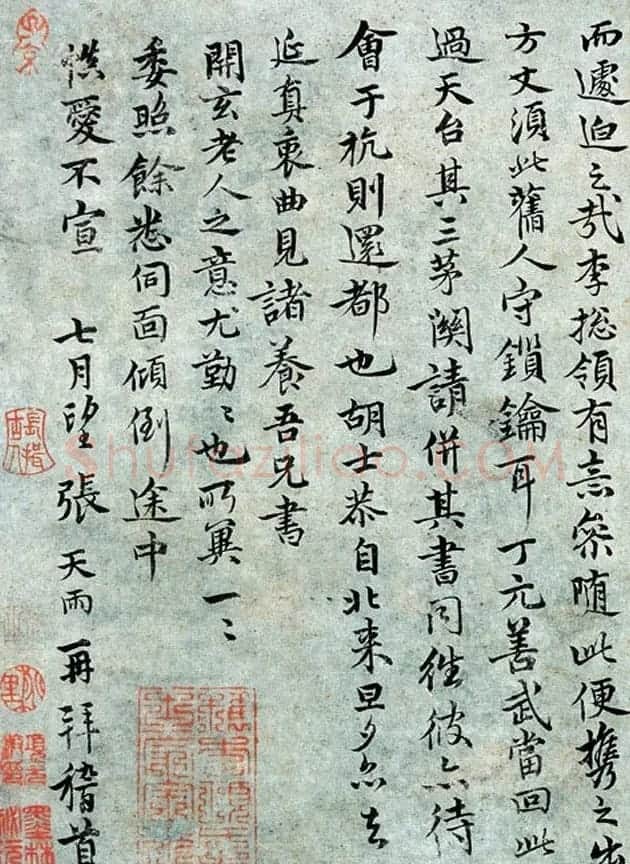 而遽迫之哉李總領有意參隨此便携之
方丈須此舊人守鎖鑰耳丁元善武當回此
過天台其三茅闕請併其書同往彼亦待
會于杭則還都也胡士恭自北来旦夕亦去
延真衷曲見諸養吾兄書
開玄老人之意尤勤〻也所冀一〻
委照餘悉伺面傾倒途中
愛不宣 七月望張天雨再拜稽首
Shufaziliao.COM